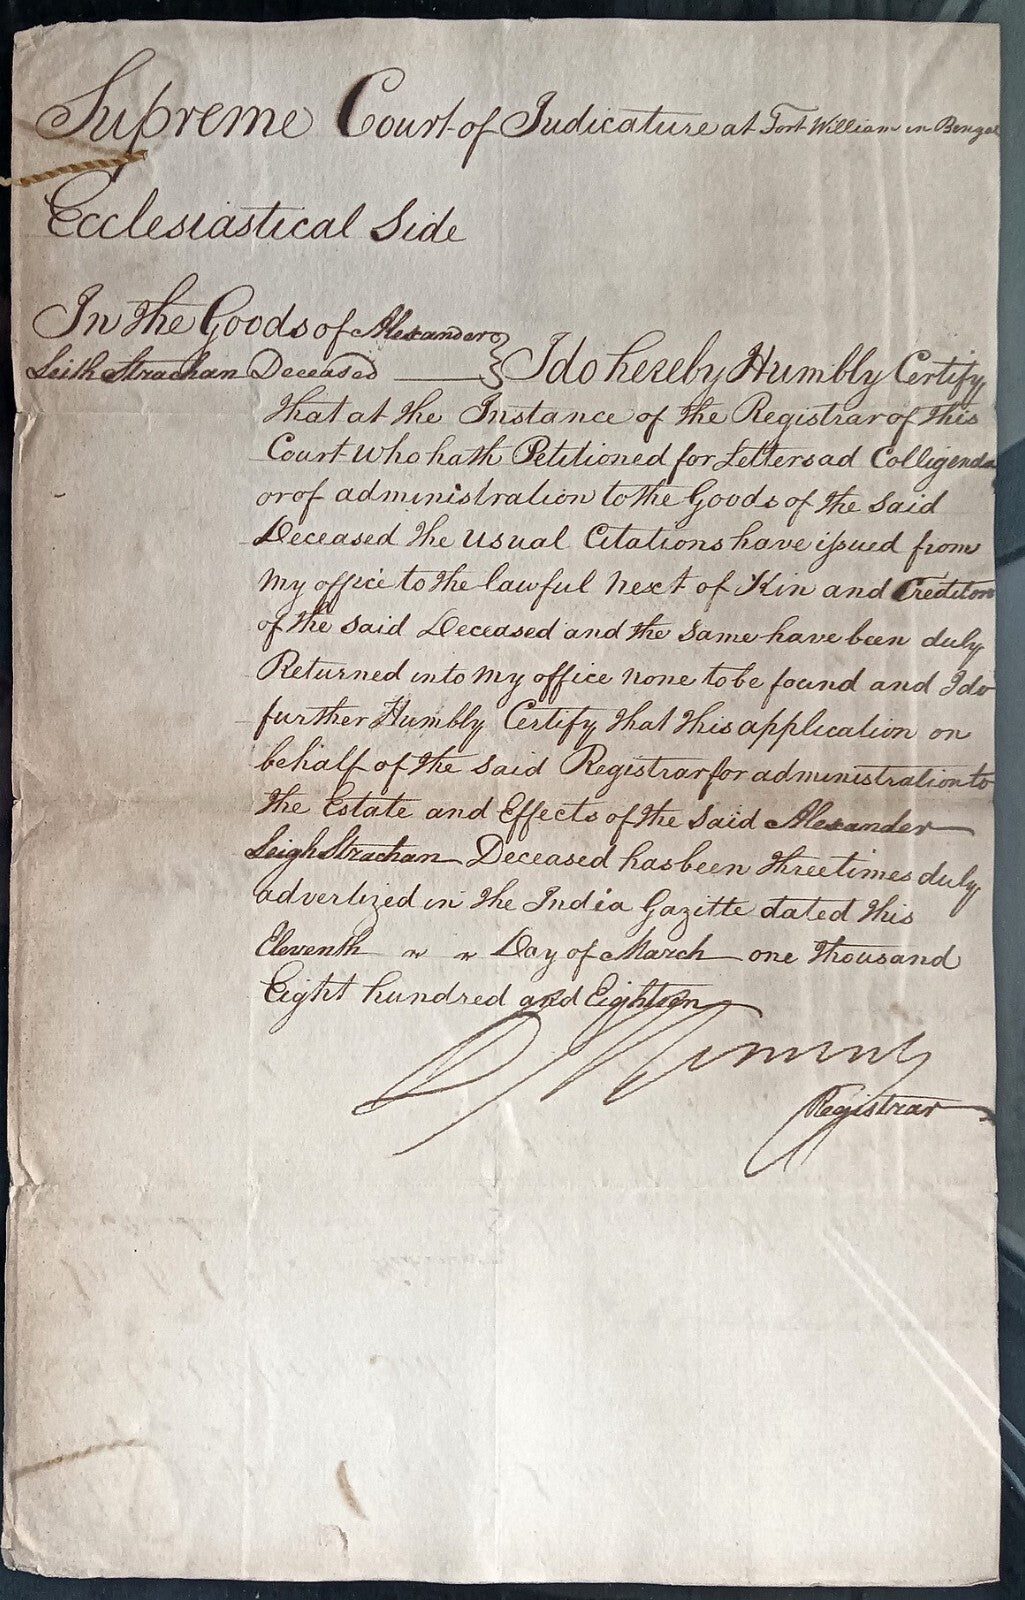 Supreme Court of Judicature at Fort William in Bengal
Ecclesiastical Side
In the Goods of Alexander
Leith Strachan Deceased } I do hereby Humbly Certify
that at the Instance of the Registrar of this
Court who hath Petitioned for Letters ad Colligenda
or of administration to the Goods of the said
Deceased the usual Citations have issued from
my office to the lawful next of Kin and Creditors
of the said Deceased and the same have been duly
Returned into my office none to be found and I do
further Humbly Certify that this application on
behalf of the said Registrar for administration to
the Estate and Effects of the said Alexander
Leigh Strachan Deceased has been three times duly
advertized in the India Gazette dated this
Eleventh Day of March one thousand
Eight hundred and Eighteen
Registrar